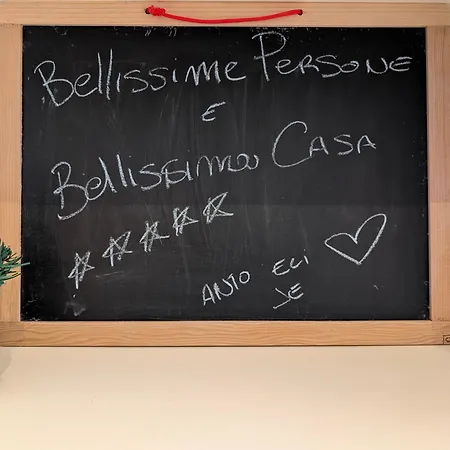 Bellissime Persone
e
Bellissima Casa
☆☆☆☆☆
Anto Eli
Je